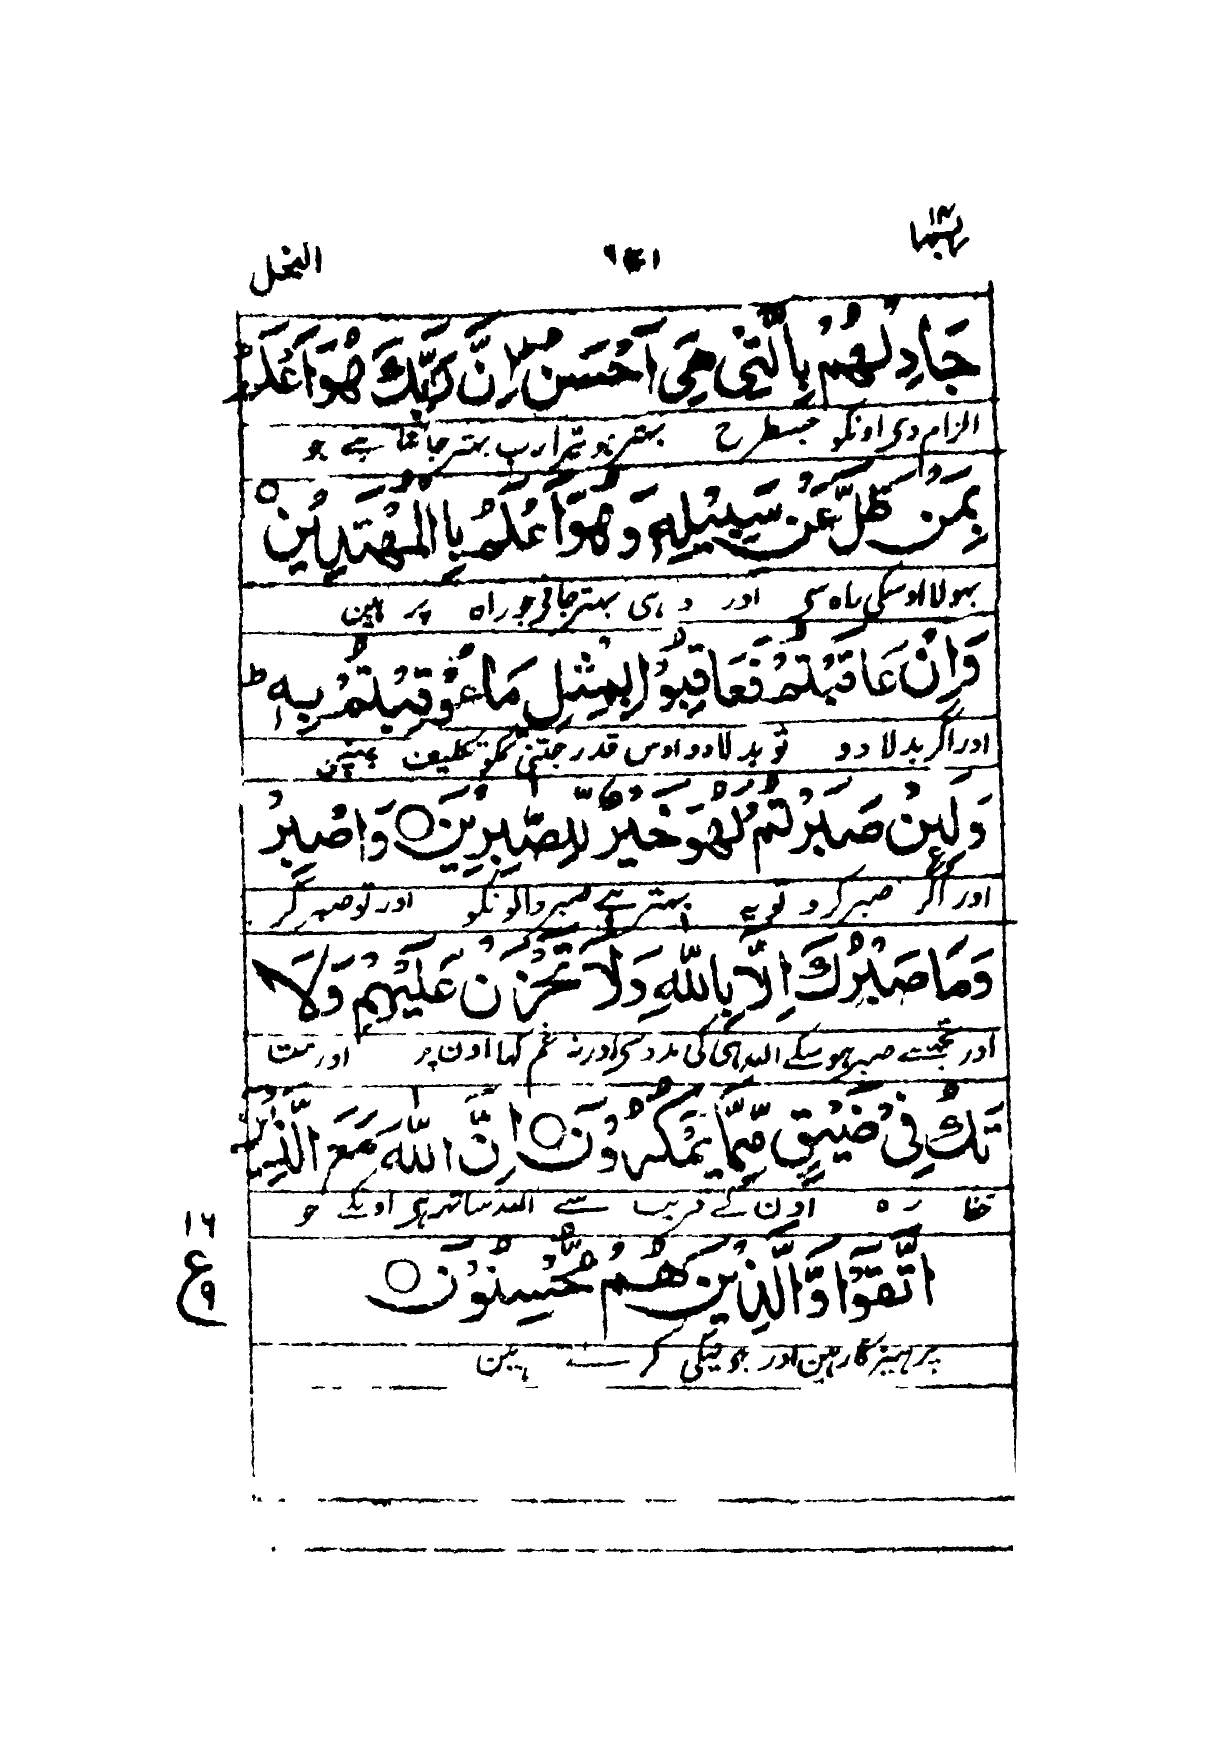 ربما ١٤
النحل
جَادِلْهُمْ بِالَّتِي هِيَ اَحْسَنُ ؕ اِنَّ رَبَّكَ هُوَ اَعْلَمُ
الزام دی اونکو جسطرح بہتر ہو تیرا رب بہتر جانتا ہے جو
بِمَنْ ضَلَّ عَنْ سَبِيْلِهٖ وَهُوَ اَعْلَمُ بِالْمُهْتَدِيْنَ ○
بہولا اوسکی راہ سی اور وہی بہتر جانی جو راہ پر ہین
وَاِنْ عَاقَبْتُمْ فَعَاقِبُوْا بِمِثْلِ مَا عُوْقِبْتُمْ بِهٖ ؕ
اور اگر بدلا دو تو بدلا دو اوس قدر جتنی تمکو تکلیف پہنچی
وَلَىِٕنْ صَبَرْتُمْ لَهُوَ خَيْرٌ لِّلصّٰبِرِيْنَ ○ وَاصْبِرْ
اور اگر صبر کرو تو یہ بہتر ہے صبر والونکو اور تو صبر کر
وَمَا صَبْرُكَ اِلَّا بِاللّٰهِ وَلَا تَحْزَنْ عَلَيْهِمْ وَلَا
اور تجھسے صبر ہو سکے اللہ ہی کی مدد سی اور نہ غم کہا اون پر اور مت
تَكُ فِيْ ضَيْقٍ مِّمَّا يَمْكُرُوْنَ ○ اِنَّ اللّٰهَ مَعَ الَّذِيْنَ
خفا رہ اون کے فریب سے اللہ ساتھ ہی اونکے جو
اتَّقَوْا وَّالَّذِيْنَ هُمْ مُّحْسِنُوْنَ ○
١٦
ع
٩
پرہیزگار ہین اور جو نیکی کرتے ہین